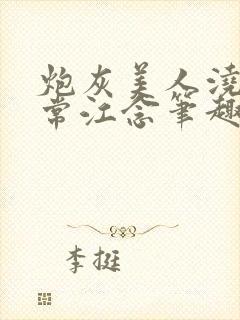 炮灰美人浇
常江念笔趣
李挺